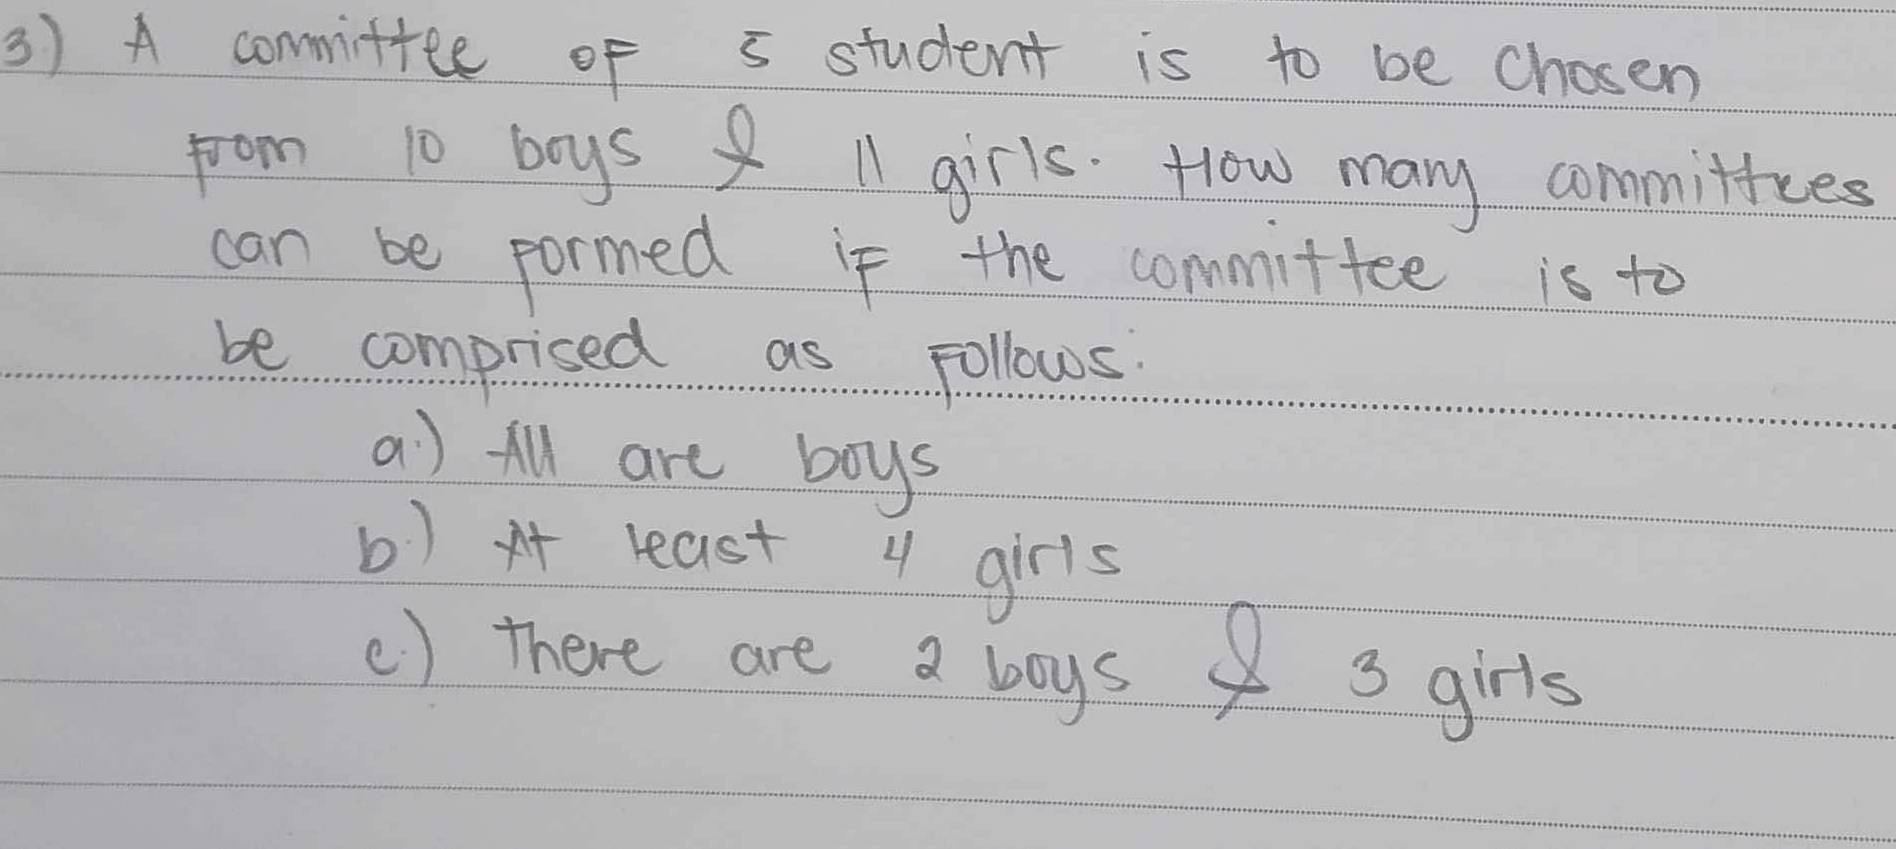 3.) A committee of 5 student is to be chosen
from 10 boys & 11 girls. How many committees
can be formed if the committee is to
be comprised as follows:
a.) All are boys
b.) At least 4 girls
c.) There are 2 boys & 3 girls